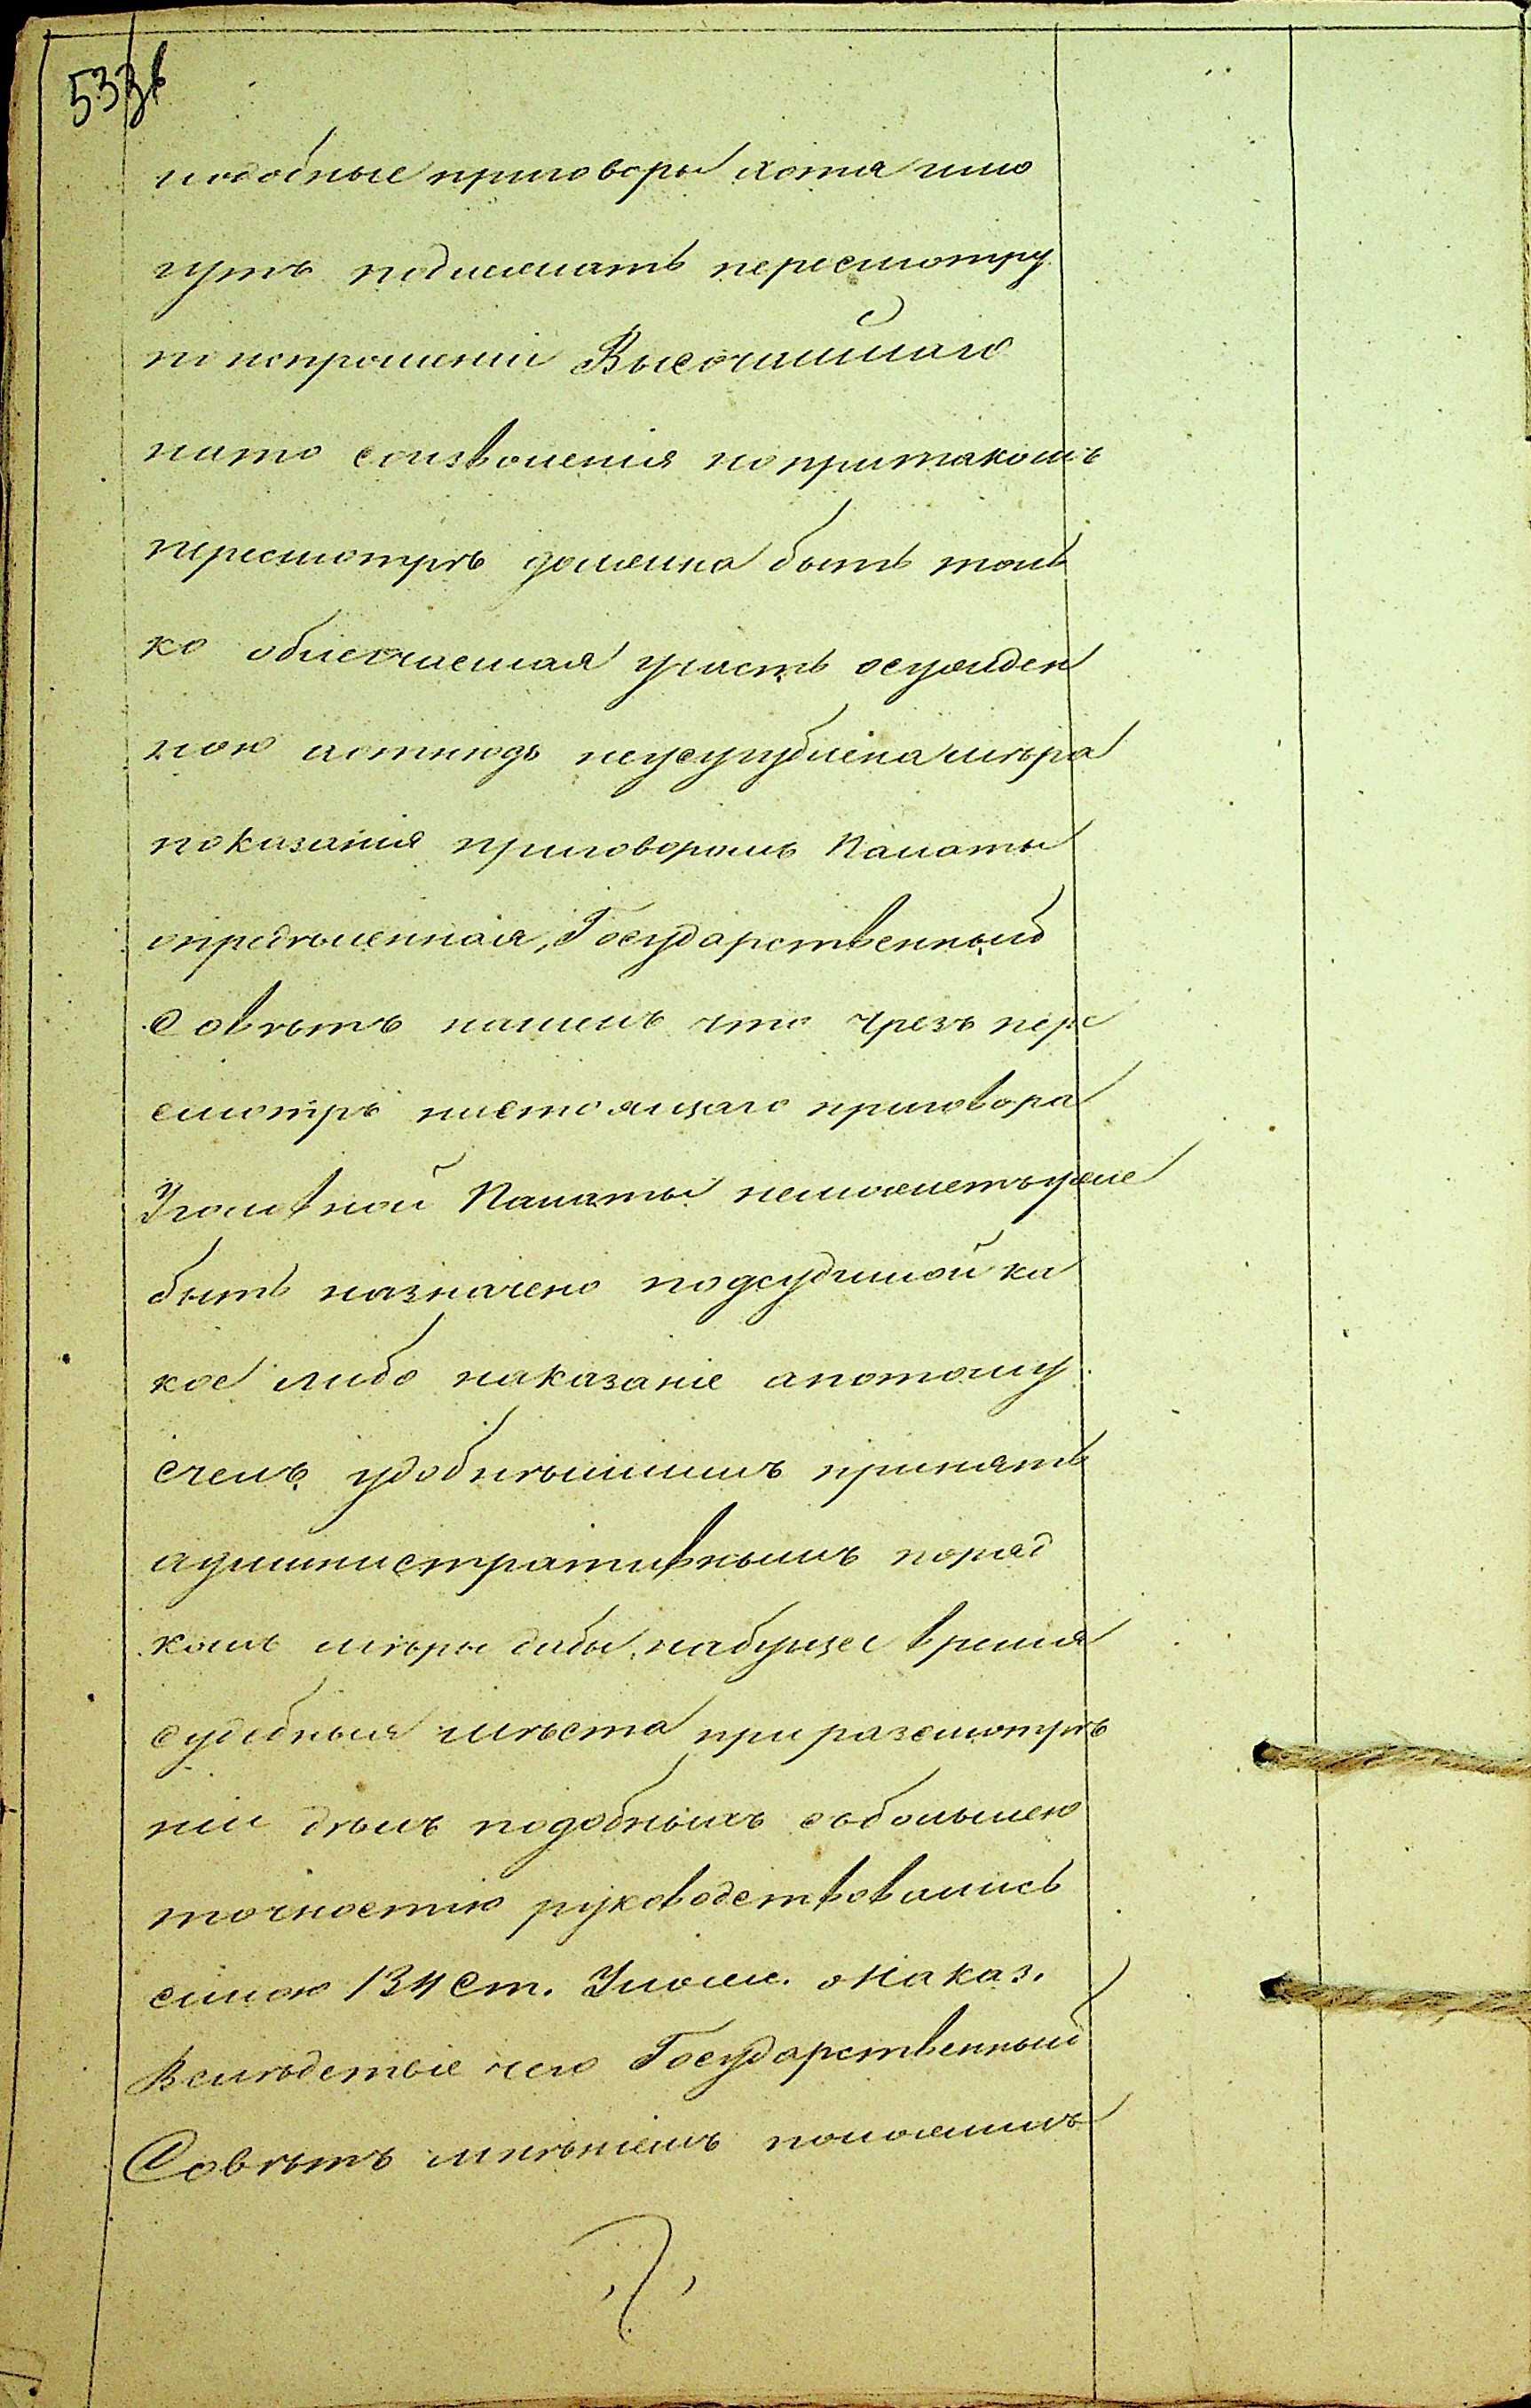 533б
подобные приговоры хотя и мо
гутъ подлежать пересмотру
по испрошеніи Высочайшаго
на то соизволенія но при такомъ
пересмотрѣ должна быть толь
ко облегчаемая участь осужден
ною а отнюдь не усугублена мѣра
показанія приговоромъ Палаты
опредѣленная, Государственный
Совѣтъ нашелъ что чрезъ пере
смотръ настоящаго приговора
Уголовной Палаты не можетъ уже
быть назначено подсудимой ка
кое либо наказаніе а потому
счелъ удобнѣйшимъ принять
административнымъ поряд
комъ мѣры дабы на будущее время
судебныя мѣста при разсмотрѣ
ніи дѣлъ подобныхъ съ большею
точностію руководствовались
силою 134 ст. Улож. о Наказ.
Вслѣдствіе чего Государственный
Совѣтъ мнѣніемъ положилъ